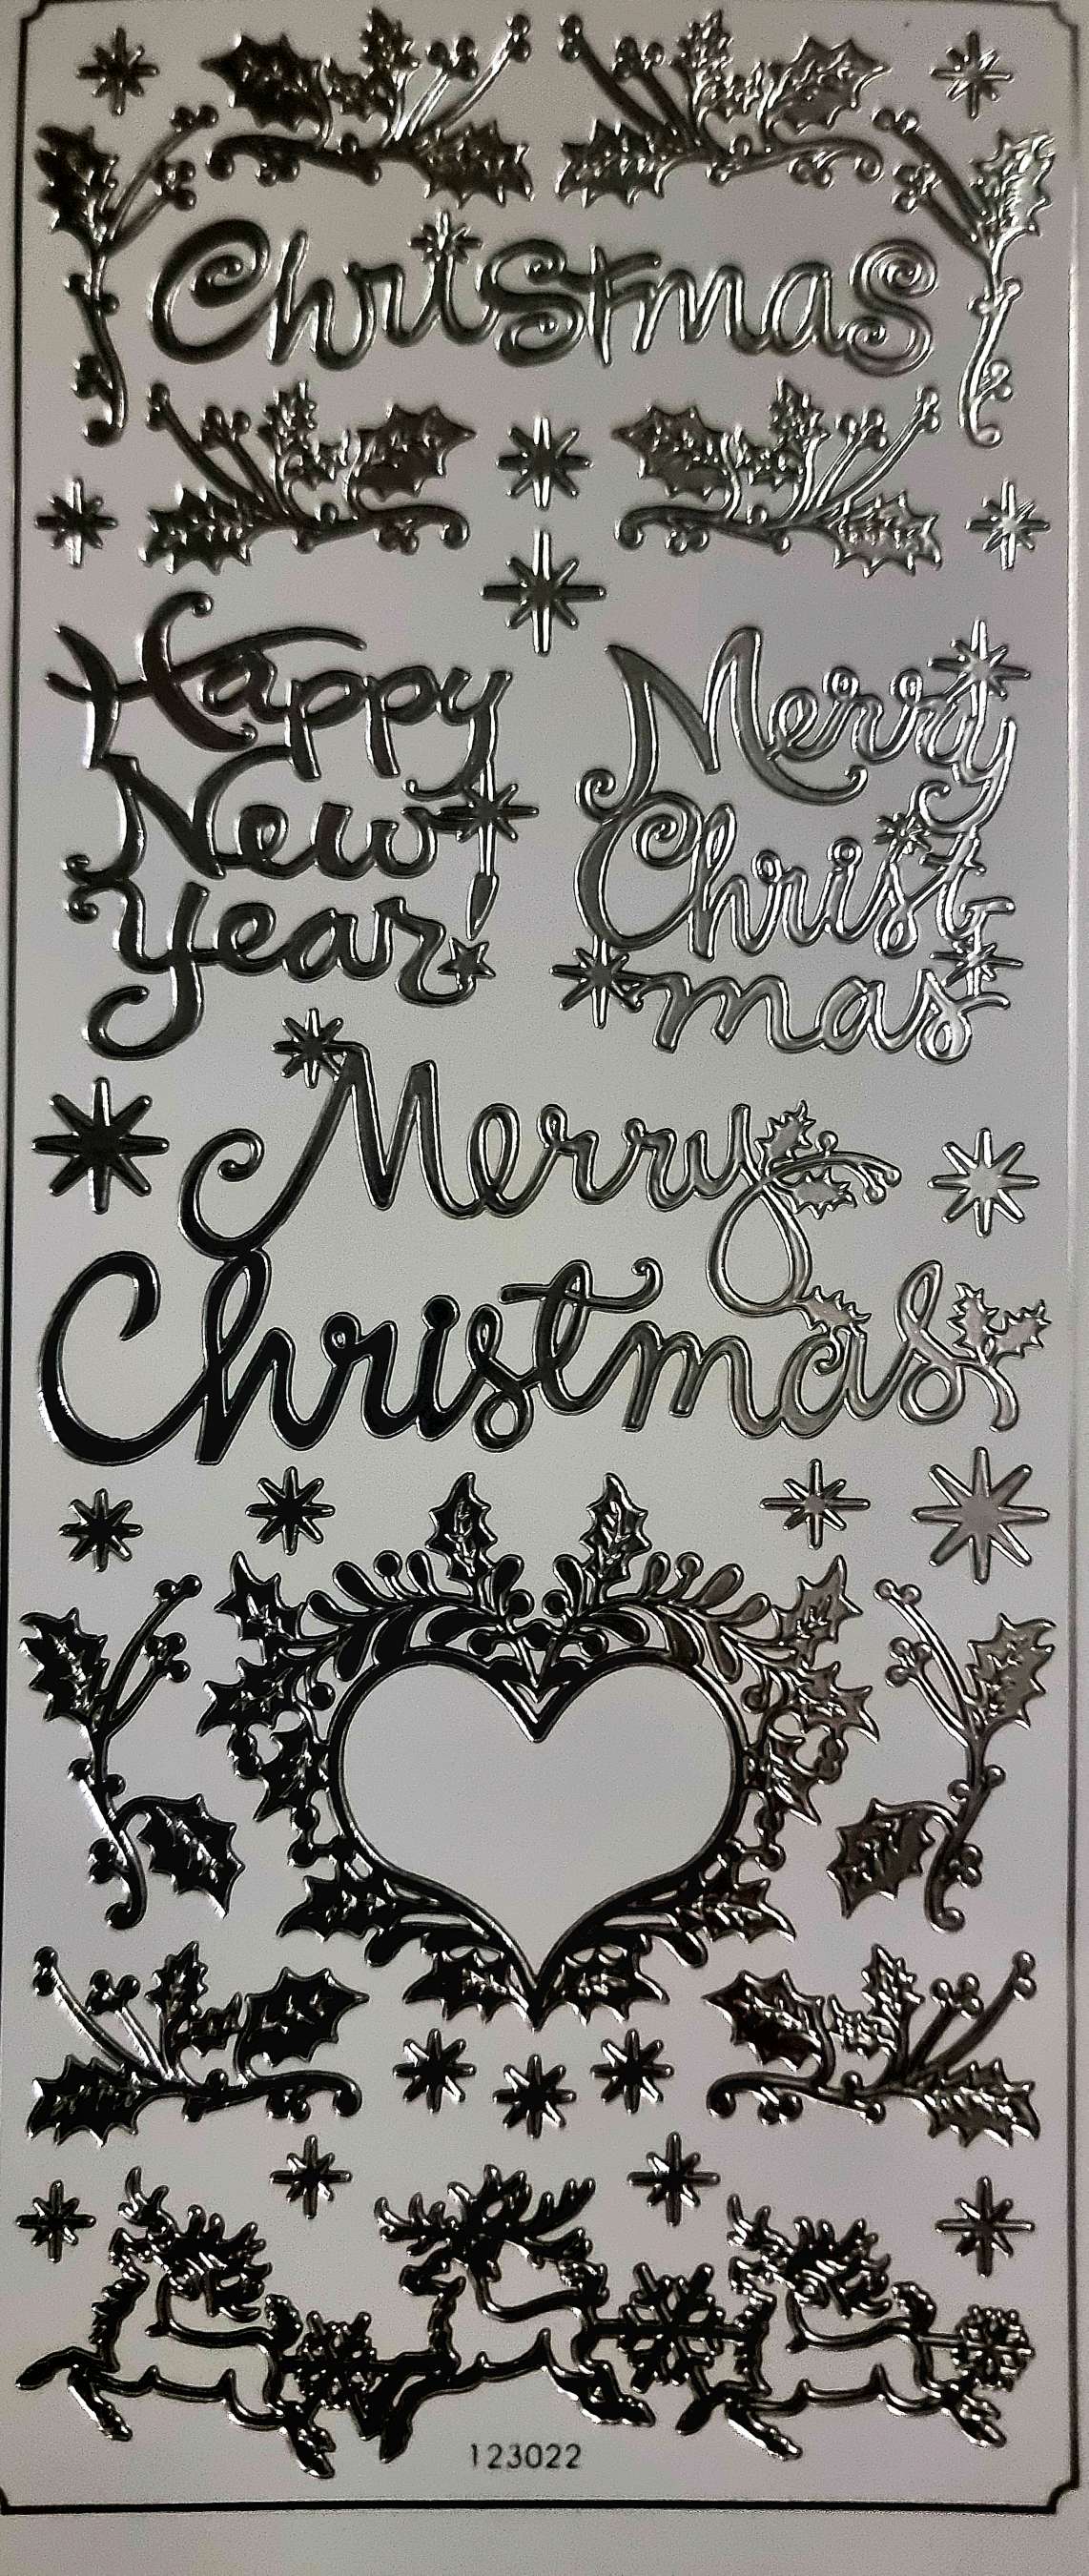 Christmas
Happy
New
Year!
Merry
Christ
mas
Merry
Christmas
123022